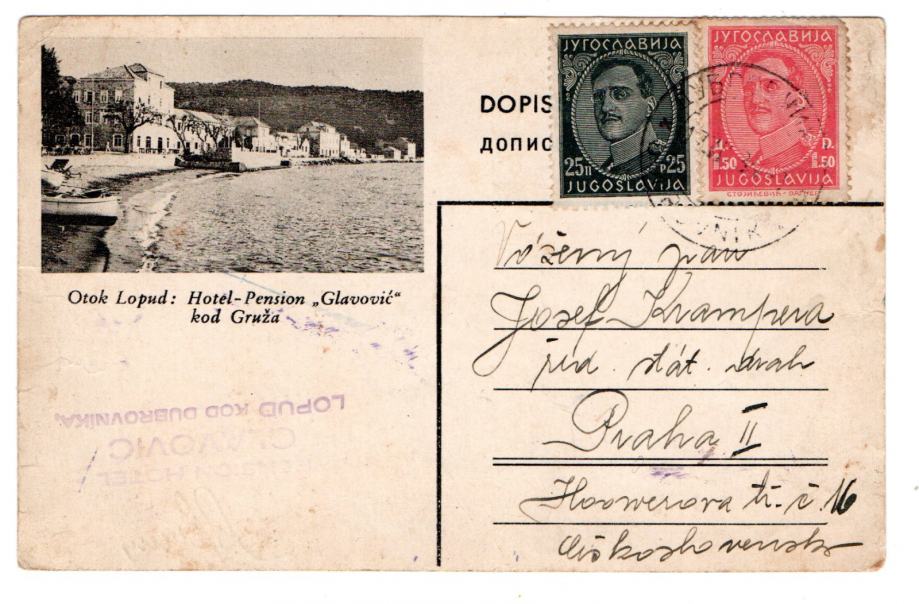 DOPIS
ДОПИС
ЈУГОСЛАВИЈА
25 П Р 25
JUGOSLAVIJA
ЈУГОСЛАВИЈА
Д. D.
1.50 1.50
JUGOSLAVIJA
Otok Lopud: Hotel-Pension „Glavović“
kod Gruža
PENSION HOTEL
GLAVOVIĆ
LOPUD KOD DUBROVNIKA
Vážený pan
Josef Krampera
řed. stát. drah
Praha II
Hoowerova tř. č. 16
Československo